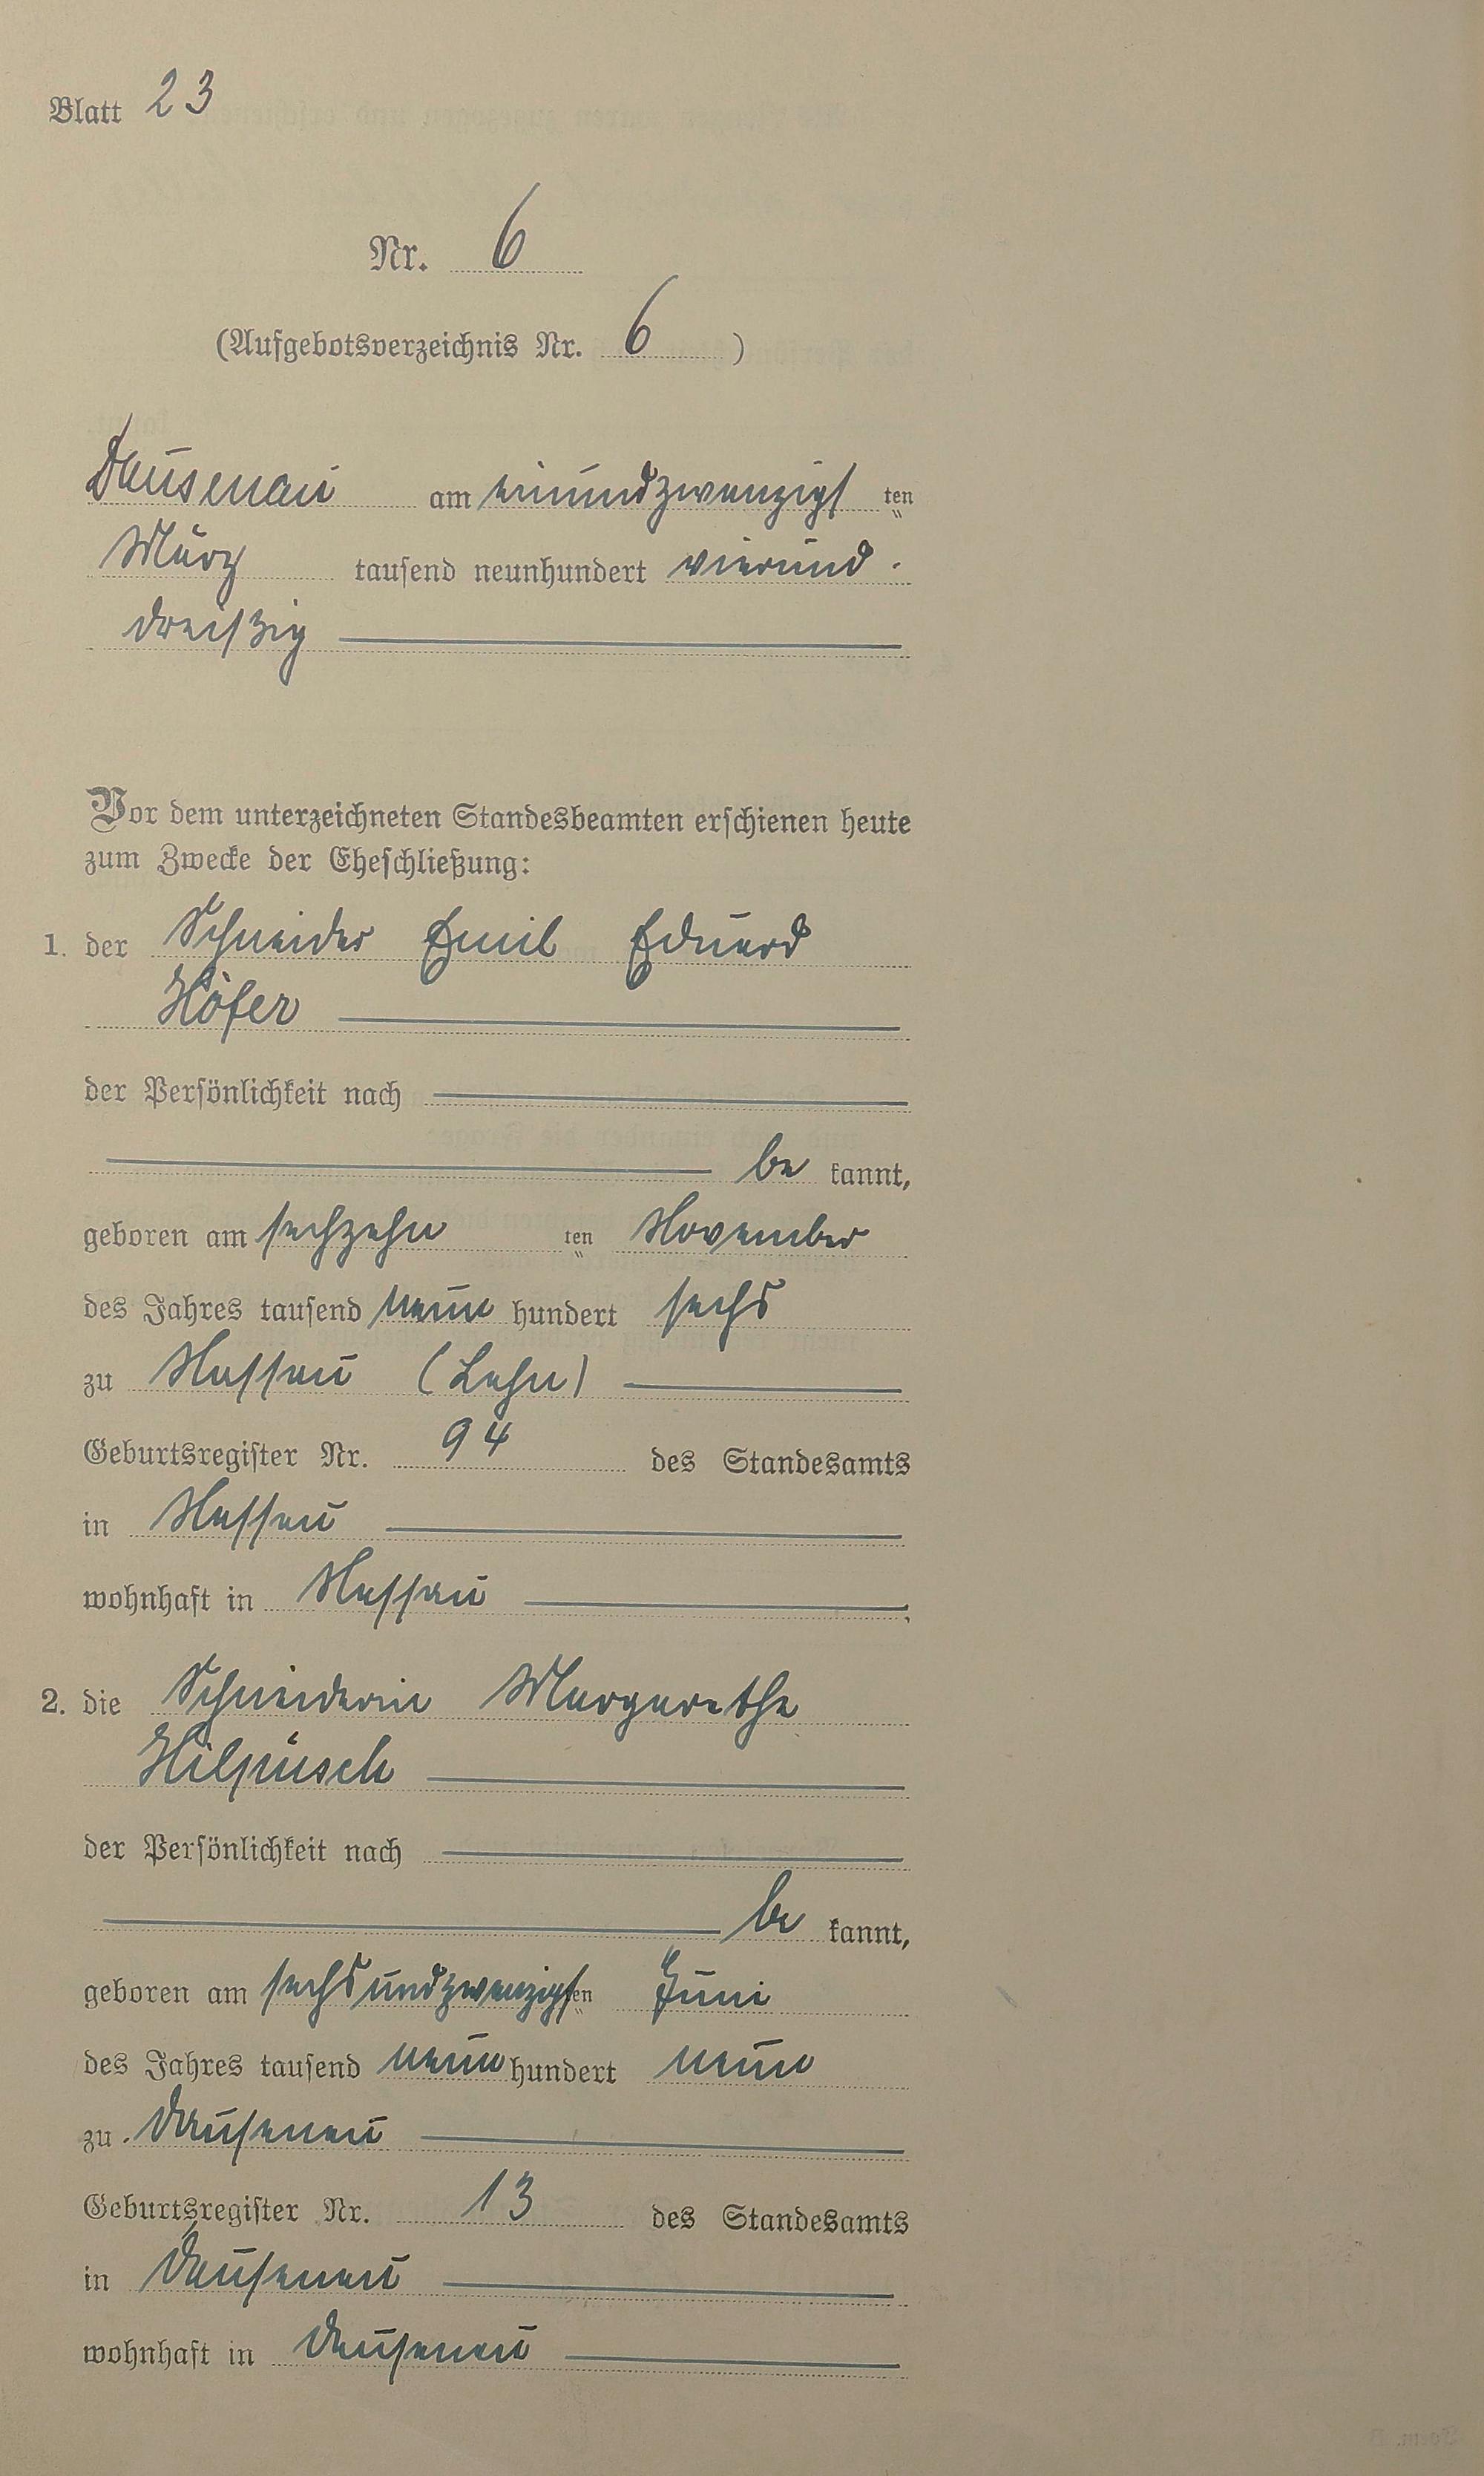 Blatt 23
Nr. 6
(Aufgebotsverzeichnis Nr. 6 )
Dausenau am einundzwanzigst ten
März tausend neunhundert vierund-
dreißig
Vor dem unterzeichneten Standesbeamten erschienen heute
zum Zwecke der Eheschließung:
1. der Schneider Emil Eduard
Höfer
der Persönlichkeit nach
be kannt,
geboren am sechzehn ten November
des Jahres tausend neun hundert sechs
zu Nassau (Lahn)
Geburtsregister Nr. 94 des Standesamts
in Nassau
wohnhaft in Nassau ;
2. die Schneiderin Margarethe
Hilpüsch
der Persönlichkeit nach
be kannt,
geboren am sechsundzwanzigsten Juni
des Jahres tausend neun hundert neun
zu Dausenau
Geburtsregister Nr. 13 des Standesamts
in Dausenau
wohnhaft in Dausenau